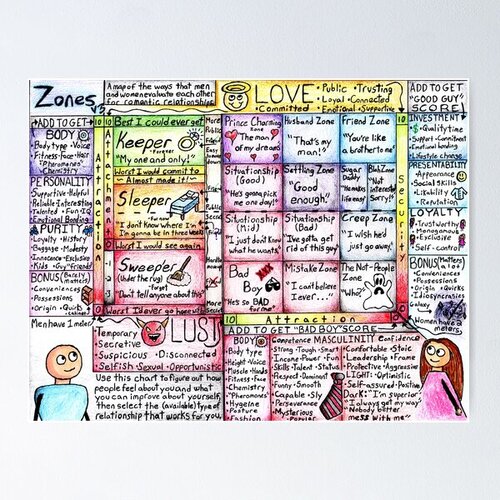 Zones
A map of the ways that men
and women evaluate each other
for romantic relationships
LOVE
Public • Trusting
• Loyal • Connected
• Committed • Emotional • Supportive
ADD TO GET
"GOOD GUY"
SCORE
ADD TO GET
BODY
Body type • Voice
Fitness • Face • Hair
Chemistry
PERSONALITY
Supportive • Helpful
Reliable • Intimate
Talented • Fun
Emotional Bonding
PURITY
Loyalty • History
Baggage
Innocence • Exclusive
Kids • "Guy-Friends"
BONUS
Conveniences
Possessions
Origin • Quirks
Men have 1 meter
10
Attraction
0
Best I could ever get
Keeper
"My one and only!"
Worst I would commit to
~ Almost made it! ~
Sleeper
"I don't know where I'm
gonna be in three weeks"
Worst I would see again
Sweeper
(Under the rug)
"Don't tell anyone about this"
Worst I'd ever go home with
Prince Charming
Zone
"The man
of my dreams"
Husband Zone
"That's my
man!"
Friend Zone
"You're like
a brother to me"
Situationship
(Good)
"He's gonna pick
me one day!"
Settling Zone
"Good
enough."
Sugar
Daddy
Situationship
(Mid)
"I just don't know
what he wants"
Situationship
(Bad)
"I've gotta get
rid of this guy"
Creep Zone
"I wish he'd
just go away."
Bad
Boy
"He's so BAD for me"
Mistake Zone
"I can't believe
I ever..."
The Not-People
Zone
"Who?"
10
Security
INVESTMENT
$ • Quality time
Support • Commitment
Emotional bonding
Lifestyle change
PRESENTABILITY
Appearance
Social skills
• Likability
• Reputation
LOYALTY
Trustworthy
Monogamous
Exclusive
Self-control
BONUS (Matters a lot)
• Conveniences
• Possessions
• Origin • Quirks
• Idiosyncrasies
Women have 2
meters
10 Attraction 0
ADD TO GET "BAD BOY" SCORE
Temporary
Secretive
LUST
Suspicious • Disconnected
Selfish • Sexual • Opportunistic
Use this chart to figure out how
people feel about you and what
you can improve about yourself,
then select the (available) type of
relationship that works for you.
BODY
Body type
Height • Voice
Muscle • Hands
Fitness • Face
Chemistry
"Pheromones"
Hygiene
Posture
Fashion
Competence
Strong • Tough • Smart
Income • Power • Fun
Skills • Talent • Status
Respect • Dominant
Funny • Smooth
Capable • Sly
• Perseverance
Mysterious
Popular
MASCULINITY
Confidence
• Comfortable • Stoic
Leadership • Frame
Protective • Aggressive
LIGHT: • Optimistic
Self-assured • Positive
Dark: "I'm superior"
"I always get my way"
"Nobody better
mess with me"